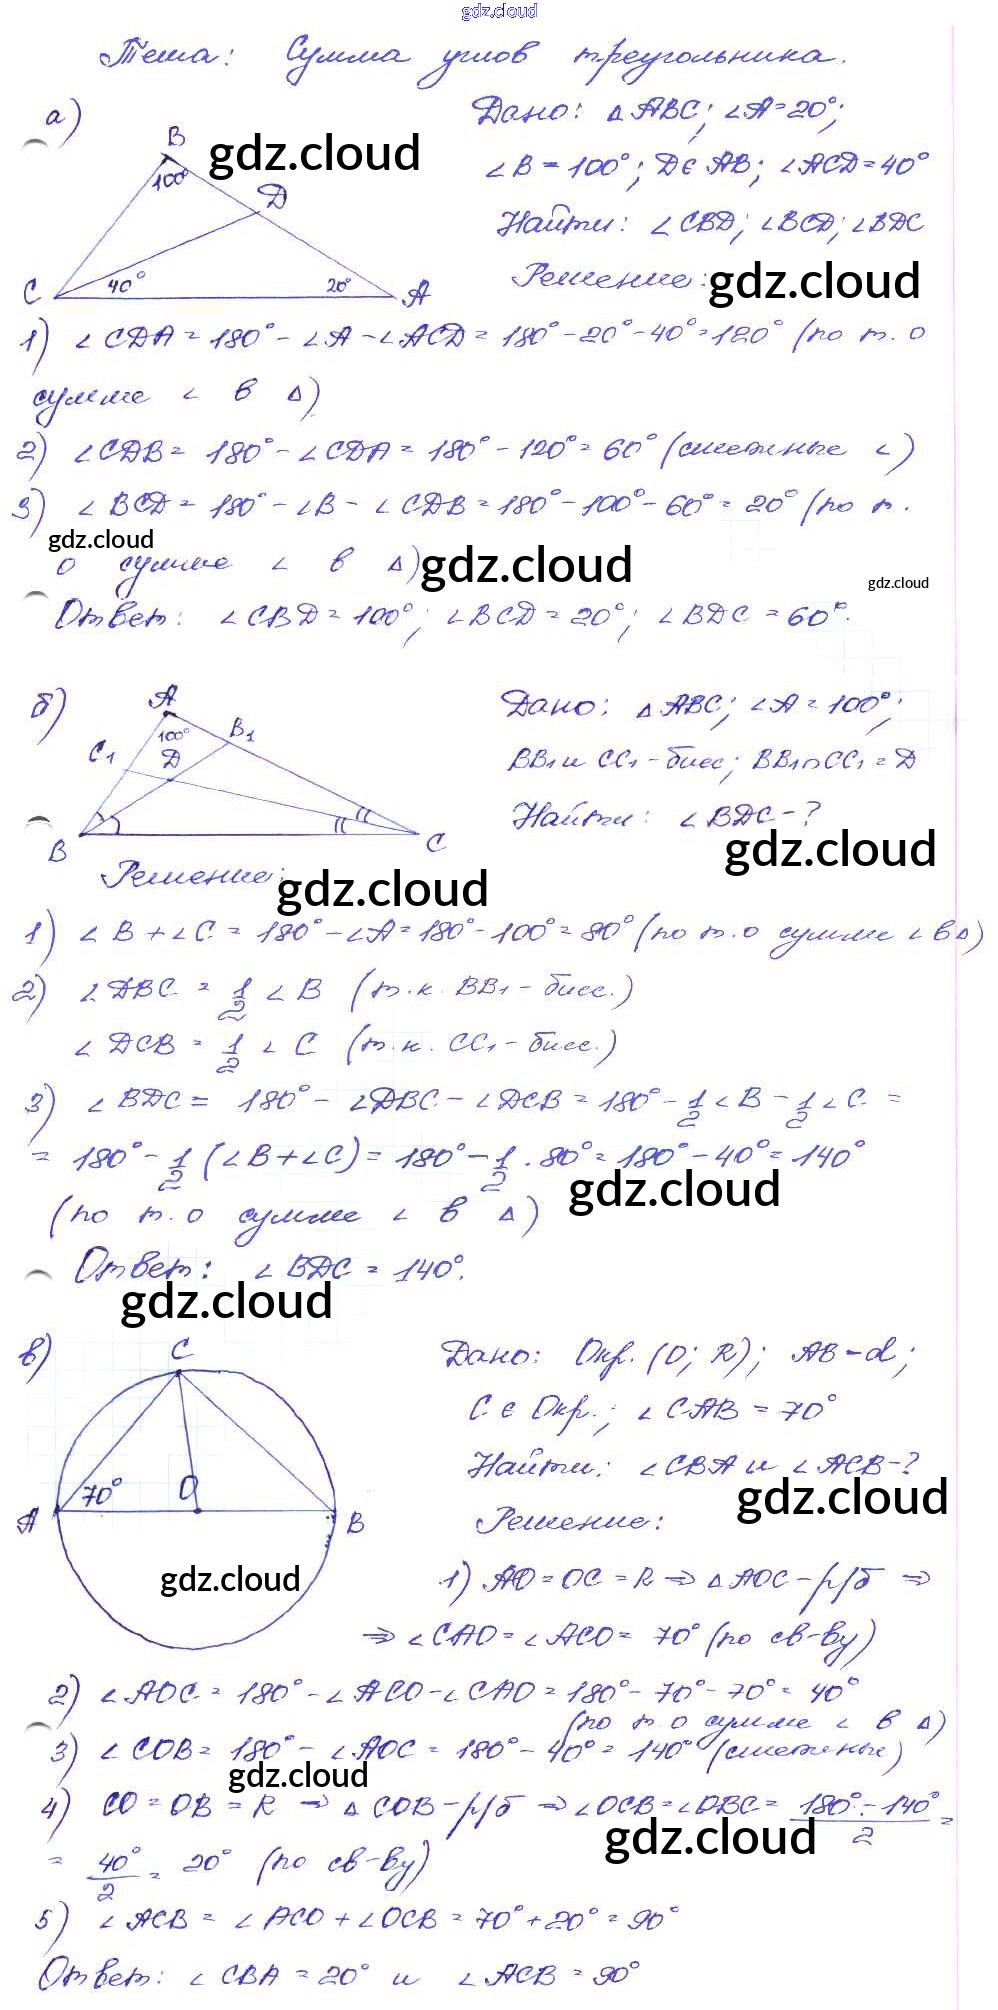 gdz.cloud
Тема: Сумма углов треугольника.
а)
B
100°
D
C
40°
20°
A
gdz.cloud
Дано: △ABC; ∠A=20°;
∠B=100°; D∈AB; ∠ACD=40°
Найти: ∠CBD; ∠BCD; ∠BDC
Решение:
gdz.cloud
1) ∠CDA=180°-∠A-∠ACD=180°-20°-40°=120° (по т. о
сумме ∠ в △)
2) ∠CDB=180°-∠CDA=180°-120°=60° (смежные ∠)
3) ∠BCD=180°-∠B-∠CDB=180°-100°-60°=20° (по т.
gdz.cloud
о сумме ∠ в △)
gdz.cloud
gdz.cloud
Ответ: ∠CBD=100°; ∠BCD=20°; ∠BDC=60°.
б)
A
100°
B₁
C₁
D
B
C
Дано: △ABC; ∠A=100°;
BB₁ и CC₁-бисс; BB₁∩CC₁=D
Найти: ∠BDC-?
gdz.cloud
Решение:
gdz.cloud
1) ∠B+∠C=180°-∠A=180°-100°=80° (по т. о сумме ∠ в △)
2) ∠DBC=1/2∠B (т.к. BB₁-бисс.)
∠DCB=1/2∠C (т.к. CC₁-бисс.)
3) ∠BDC=180°-∠DBC-∠DCB=180°-1/2∠B-1/2∠C=
=180°-1/2(∠B+∠C)=180°-1/2·80°=180°-40°=140°
gdz.cloud
(по т. о сумме ∠ в △)
Ответ: ∠BDC=140°.
gdz.cloud
в)
C
70°
O
A
B
gdz.cloud
Дано: Окр.(O; R); AB-d;
C∈Окр.; ∠CAB=70°
Найти: ∠CBA и ∠ACB-?
gdz.cloud
Решение:
1) AO=OC=R⇒△AOC-р/б⇒
⇒∠CAO=∠ACO=70° (по св-ву)
2) ∠AOC=180°-∠ACO-∠CAO=180°-70°-70°=40°
(по т. о сумме ∠ в △)
3) ∠COB=180°-∠AOC=180°-40°=140° (смежные)
gdz.cloud
4) CO=OB=R⇒△COB-р/б⇒∠OCB=∠OBC=(180°-140°)/2=
gdz.cloud
=40°/2=20° (по св-ву)
5) ∠ACB=∠ACO+∠OCB=70°+20°=90°
Ответ: ∠CBA=20° и ∠ACB=90°